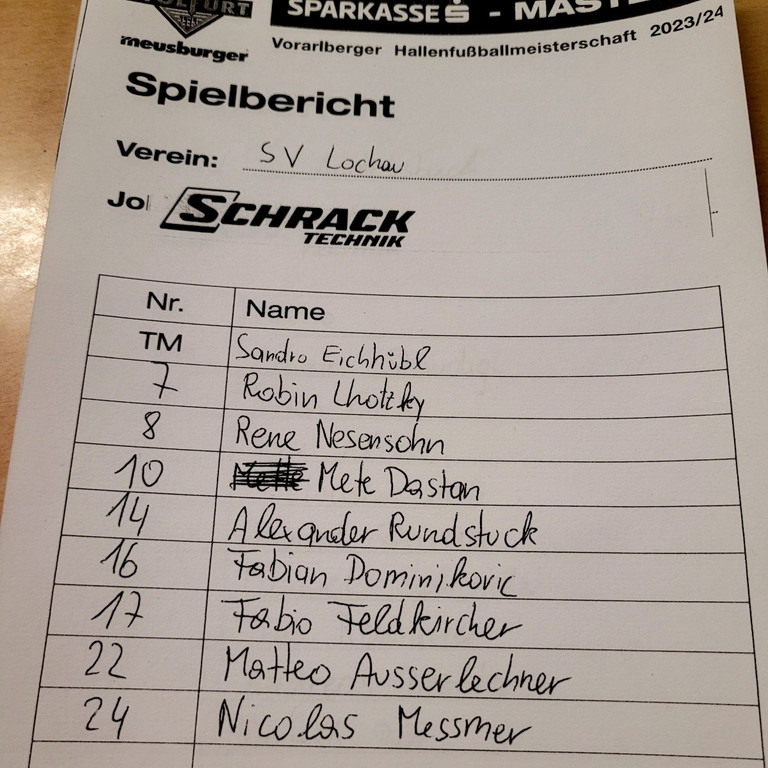 SPARKASSE - MAST
meusburger
Vorarlberger Hallenfußballmeisterschaft 2023/24
Spielbericht
Verein: SV Lochau
Jo SCHRACK
TECHNIK
Nr. Name
TM Sandro Eichhübl
7 Robin Lhotzky
8 Rene Nesensohn
10 Mete Dastan
14 Alexander Rundstuck
16 Fabian Dominikovic
17 Fabio Feldkircher
22 Matteo Ausserlechner
24 Nicolas Messmer